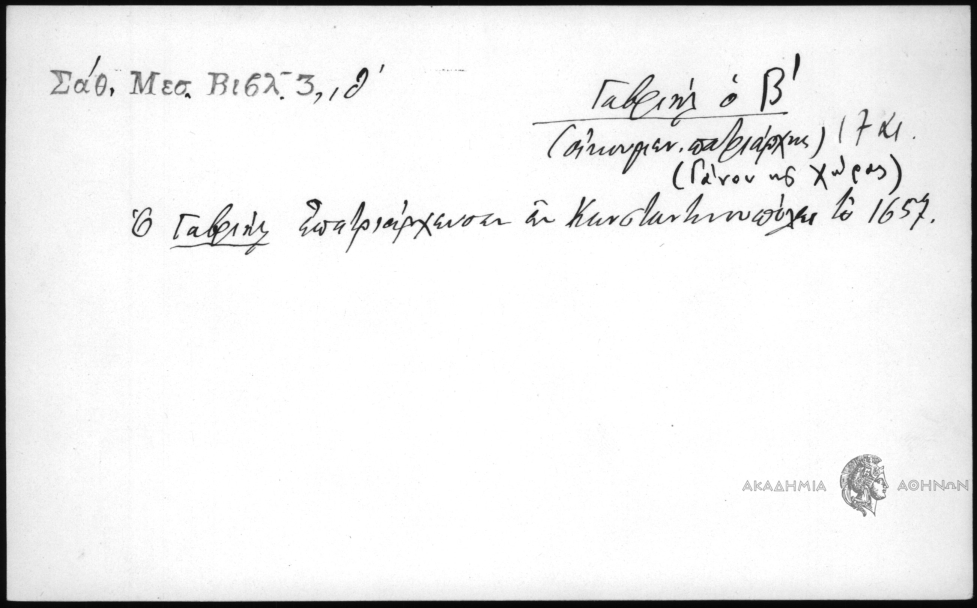 Σάθ. Μεσ. Βιβλ. 3, ,θ'
Γαβριήλ ὁ Β'
(οἰκουμεν. πατριάρχης) 17 αι.
(Γάνου κς Χώρας)
Ὁ Γαβριήλ ἐπατριάρχευσεν ἐν Κωνσταντινουπόλει τῷ 1657.
ΑΚΑΔΗΜΙΑ ΑΘΗΝΩΝ